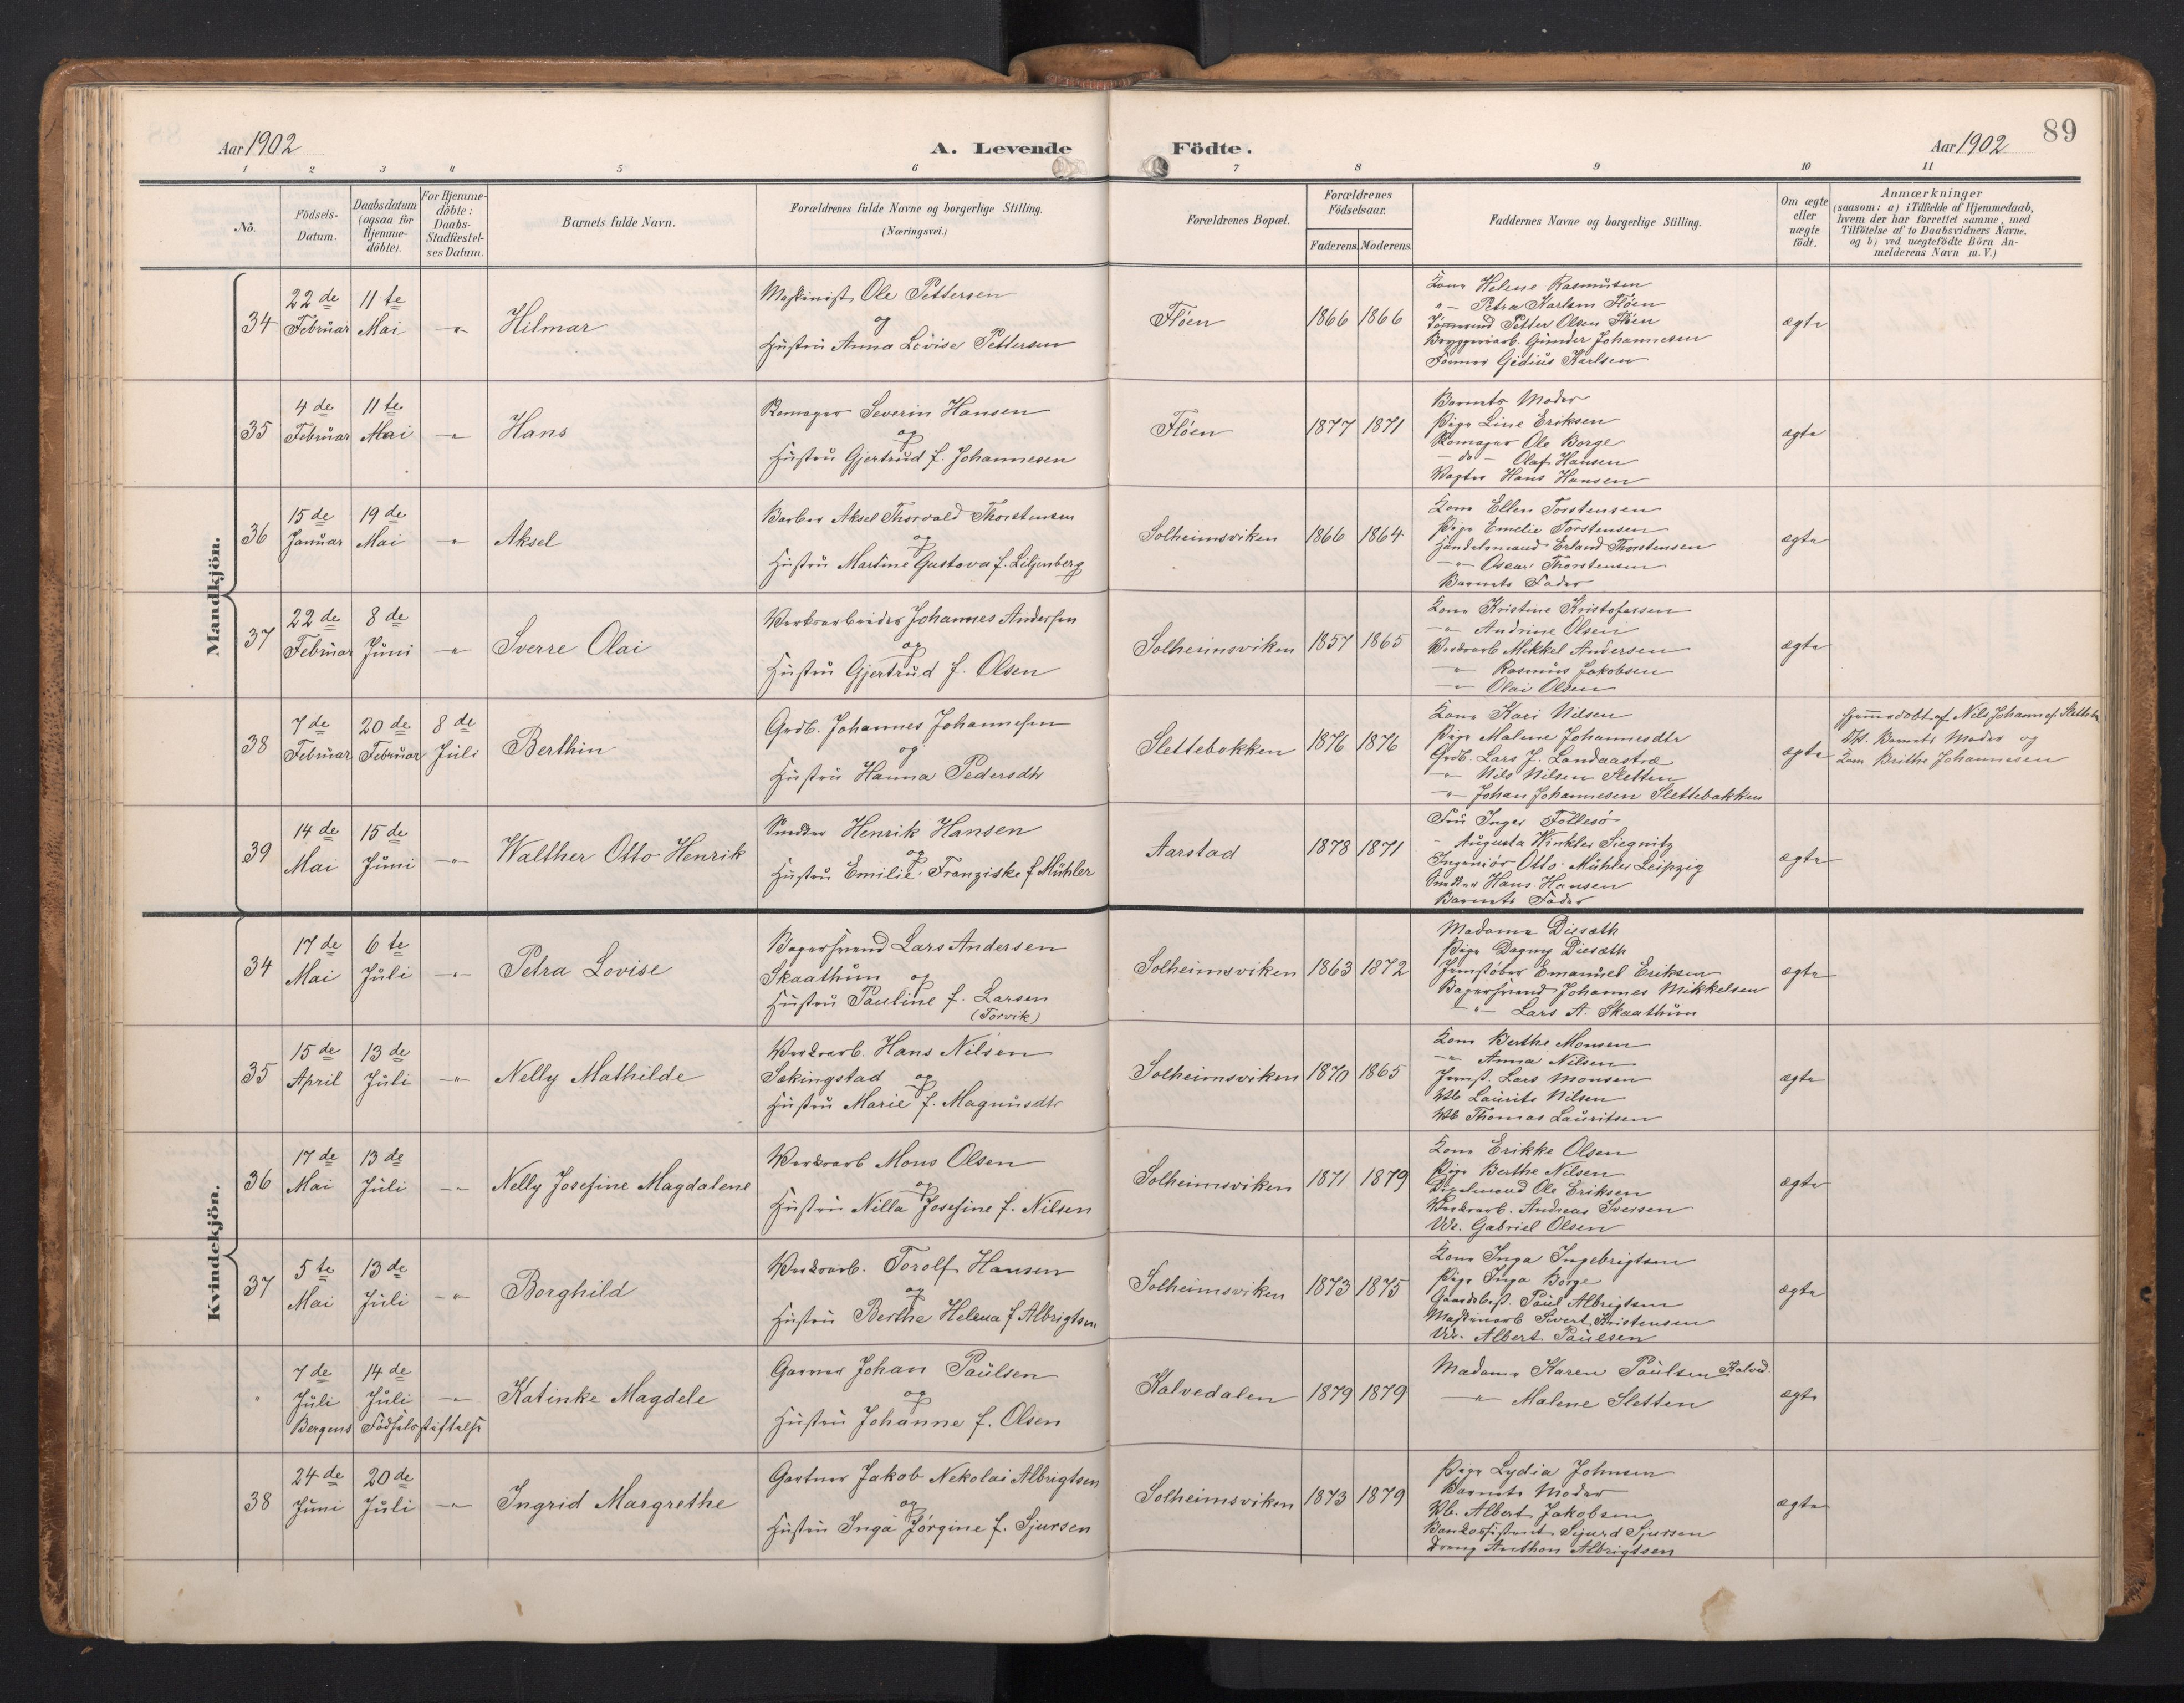 Aar 1902
A. Levende
Födte.
Aar 1902
89
1 2 3 4 5 6 7 8 9 10 11
No.
Födsels-
Datum.
Daabsdatum
(ogsaa for
Hjemme-
döbte).
For Hjemme-
döbte:
Daabs-
Stadfæstel-
ses Datum.
Barnets fulde Navn.
Forældrenes fulde Navne og borgerlige Stilling.
(Næringsvei.)
Forældrenes Bopæl.
Forældrenes
Födselsaar.
Faderens. Moderens.
Faddernes Navne og borgerlige Stilling.
Om ægte
eller
uægte
födt.
Anmærkninger
(saasom: a) i Tilfælde af Hjemmedaab,
hvem der har forrettet samme, med
Tilföielse af to Daabsvidners Navne.
og b) ved uægtefödte Börn An-
melderens Navn m. V.)
Mandkjön.
34
22de
Februar
11te
Mai
-"-
Hilmar
Maskinist Ole Pettersen
og
Hustru Anna Lovise Pettersen
Flöen
1866 1866
Kone Helene Rasmusen
"- Petra Karlsen Flöen
Tömmermd Petter Olsen Flöen
Bryggeriarb. Gunder Johannesen
Former Gedius Karlsen
ægte
35
4de
Februar
11te
Mai
-"-
Hans
Remager Severin Hansen
og
Hustru Gjertrud f. Johannesen
Flöen
1877 1871
Barnets Moder
Pige Line Eriksen
Remager Ole Borge
- do - Olaf Hansen
Vogter Hans Hansen
ægte
36
15de
Januar
19de
Mai
-"-
Aksel
Barber Aksel Thorvald Thorstensen
og
Hustru Martine Gustava f. Liljenberg
Solheimsviken
1866 1864
Kone Ellen Torstensen
Pige Emelie Torstensen
Handelsmand Erland Thorstensen
-"- Oscar Thorstensen
Barnets Fader
ægte
37
22de
Februar
8de
Juni
-"-
Sverre Olai
Verksarbeider Johannes Andersen
og
Hustru Gjertrud f. Olsen
Solheimsviken
1857 1865
Kone Kristine Kristofersen
-"- Andrine Olsen
Verksarb Mikkel Andersen
-"- Rasmus Jakobsen
-"- Olai Olsen
ægte
38
7de
Februar
20de
Februar
8de
Juli
Berthin
Grdb. Johannes Johannesen
og
Hustru Hanna Pedersdtr
Slettebakken
1876 1876
Kone Kari Nilsen
Pige Malene Johannesdtr
Grdb. Lars J. Landaastræ
-"- Nils Nilsen Sletten
-"- Johan Johannesen Slettebakken
ægte
Hjemmedöbt af Nils Johannes. Sletteb
Barnets Moder og
Kone Brithe Johannesen
39
14de
Mai
15de
Juni
-"-
Walther Otto Henrik
Snedker Henrik Hansen
og
Hustru Emilie Franziske f Mühler
Aarstad
1878 1871
Fru Inger Follesö
Augusta Winkler Siegnitz
Ingeniör Otto Mühler Leipzig
Snedker Hans Hansen
Barnets Fader
ægte
Kvindekjön.
34
17de
Mai
6te
Juli
-"-
Petra Lovise
Bagersvend Lars Andersen
Skaathun og
Hustru Pauline f. Larsen
(Torvik)
Solheimsviken
1863 1872
Madame Diesæth
Pige Dagny Diesæth
Jernstöber Emanuel Eriksen
Bagersvend Johannes Mikkelsen
-"- Lars A. Skaathun
ægte
35
15de
April
13de
Juli
-"-
Nelly Mathilde
Verksarb. Hans Nilsen
Sekingstad og
Hustru Marie f. Magnusdtr
Solheimsviken
1870 1865
Kone Berthe Monsen
-"- Anna Nilsen
Jernst. Lars Monsen
Vb Laurits Nilsen
Vb Thomas Lauritsen
ægte
36
17de
Mai
13de
Juli
-"-
Nelly Josefine Magdalene
Verksarb Mons Olsen
og
Hustru Nilla Josefine f. Nilsen
Solheimsviken
1871 1879
Kone Erikke Olsen
Pige Berthe Nilsen
Ole Eriksen
Verksarb. Andreas Iversen
Vb. Gabriel Olsen
ægte
37
5te
Mai
13de
Juli
-"-
Borghild
Verksarb. Torolf Hansen
og
Hustru Berthe Helena f Albrigtsen.
Solheimsviken
1873 1875
Kone Inga Ingebrigtsen
Pige Inga Borge
Gaardsbest. Paul Albrigtsen
Maskinarb Sivert Kristensen
Vb. Albert Paulsen
ægte
"
7de
Juli
14de
Juli
-"-
Bergens Födselsstiftelse
Katinke Magdele
Garver Johan Paulsen
og
Hustru Johanne f. Olsen
Kalvedalen
1879 1879
Madame Karen Paulsen Kalved.
-"- Malene Sletten
ægte
38
24de
Juni
20de
Juli
-"-
Ingrid Margrethe
Gartner Jakob Nekolai Albrigtsen
og
Hustru Inga Jörgine f. Sjursen
Solheimsviken
1873 1879
Pige Lydia Johnsen
Barnets Moder
Vb. Albert Jakobsen
Bankassistent Sjurd Sjursen
Dreng Anthon Albrigtsen
ægte